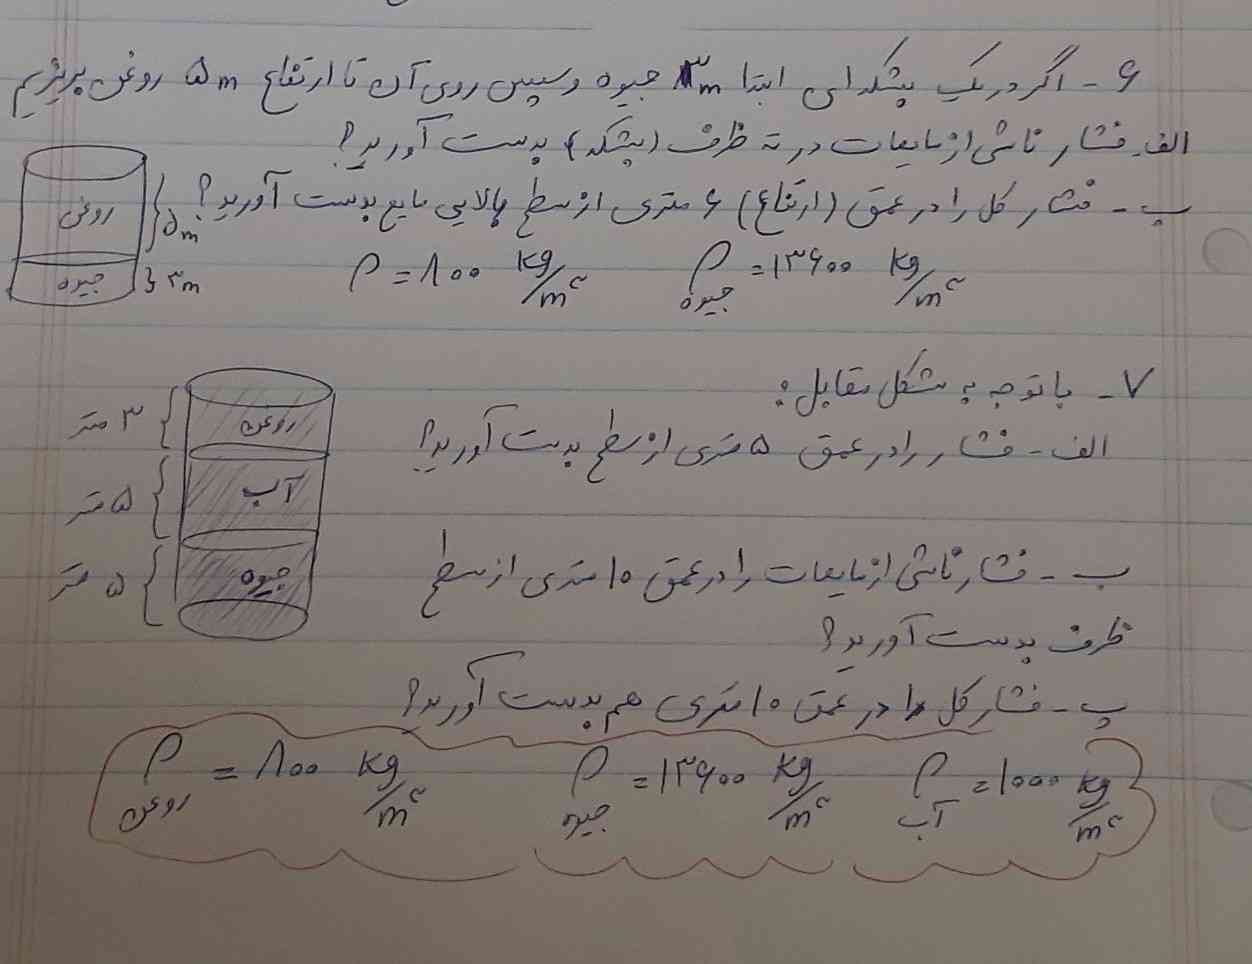 ۶ - اگر در یک بشکه ای ابتدا ۳m جیوه و سپس روی آن تا ارتفاع ۵m روغن بریزیم
الف - فشار ناشی از مایعات در ته ظرف (بشکه) بدست آورید؟
ب - فشار کل را در عمق (ارتفاع) ۶ متری از سطح بالایی مایع بدست آورید؟
روغن } ۵m
جیوه } ۳m
ρ = ۸۰۰ kg/m³ ρ جیوه = ۱۳۶۰۰ kg/m³
۷ - با توجه به شکل مقابل:
الف - فشار را در عمق ۵ متری از سطح بدست آورید؟
ب - فشار ناشی از مایعات را در عمق ۱۰ متری از سطح
ظرف بدست آورید؟
پ - فشار کل را در عمق ۱۰ متری هم بدست آورید؟
۳ متر { روغن
۵ متر { آب
۵ متر { جیوه
ρ روغن = ۸۰۰ kg/m³ ρ جیوه = ۱۳۶۰۰ kg/m³ ρ آب = ۱۰۰۰ kg/m³